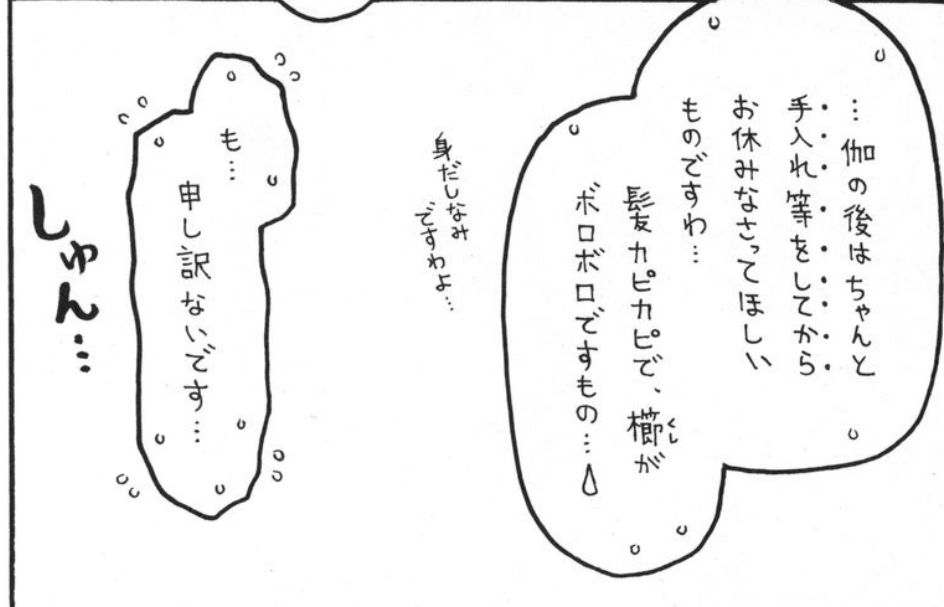 …伽の後はちゃんと
手入れ等をしてから
お休みなさってほしい
ものですわ…
髪カピカピで、櫛が
くし
ボロボロですもの…
身だしなみ
ですわよ…
も…
申し訳ないです…
しゅん…